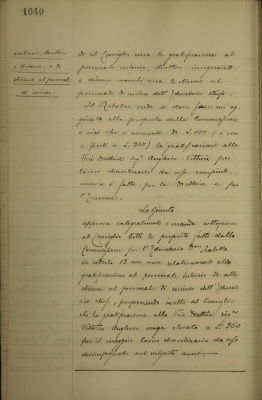 1040
interno, direttore
e diurno, e di
strenne al personale
di servizio
di al Consiglio circa le gratificazioni al
personale interno, direttore, insegnante
e diurno nonchè circa le strenne al
personale di servizio dell'Educatorio stesso.
Il Relatore crede di dover fare un'ag-
giunta alla proposta della Commissione
e cioè che si aumenti di L. 100 (e così
a porti a L. 360) la gratificazione alla
Vice Direttrice sig.ª Anglesio Vittoria per
lavoro straordinario da essa compiuto,
come si è fatto per la Direttrice e per
l'Economa.
La Giunta
approva integralmente e manda sottoporre
al Consiglio tutte le proposte fatte dalla
Commissione per l'Educatorio Duch. Isabella
in seduta 12 corr. mese relativamente alle
gratificazioni al personale interno ed alle
strenne al personale di servizio dell'Educato-
rio stesso, proponendo inoltre al Consiglio
che la gratificazione alla Vice Direttrice sig.ª
Vittoria Anglesio venga elevata a L. 360
per il maggior lavoro straordinario da essa
disimpegnato nel volgente anno.